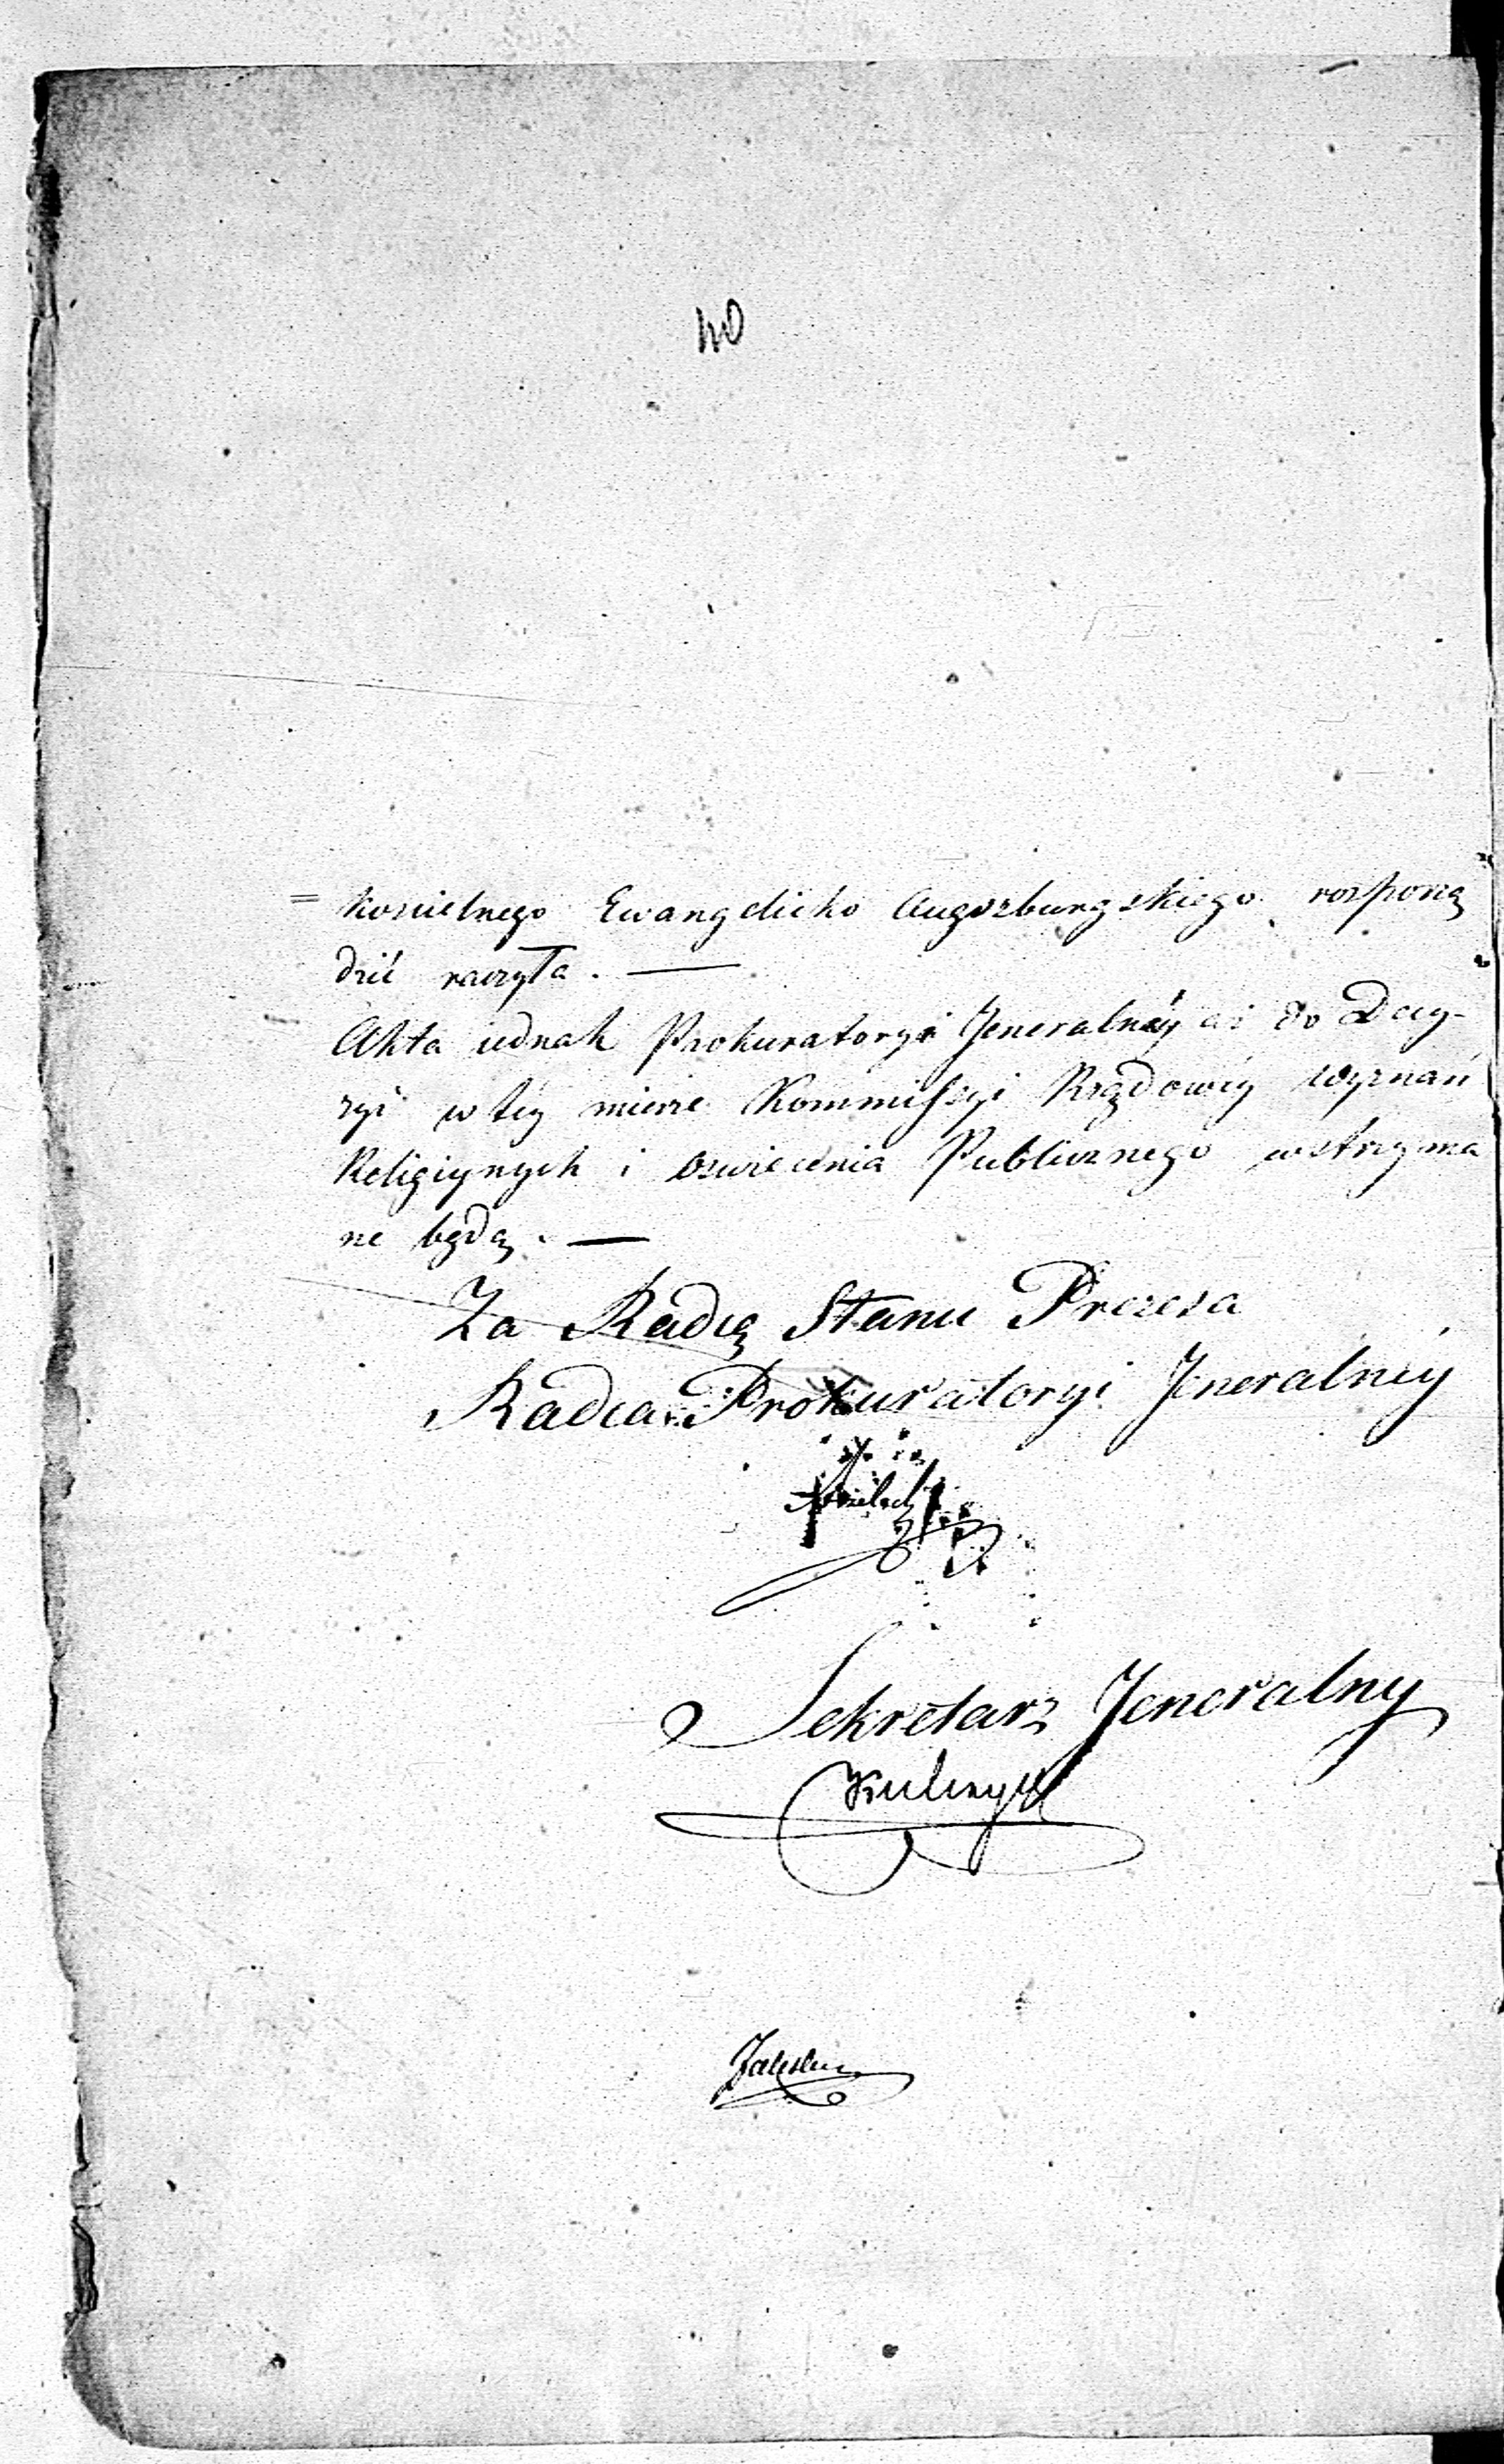 40
= Koscielnego Ewangelicko Augszburgskiego rozporzą
dzić raczyła. —
Akta iednak Prokuratoryi Jeneralnéy aż do Decy-
zyi w téy mierze Kommissyi Rządowéy Wyznań
Religiynych i Oswiecenia Publicznego wstrzyma
ne będą. —
Za Radcę Stanu Prezesa
Radca Prokuratoryi Jeneralnéy
Sekretarz Jeneralny